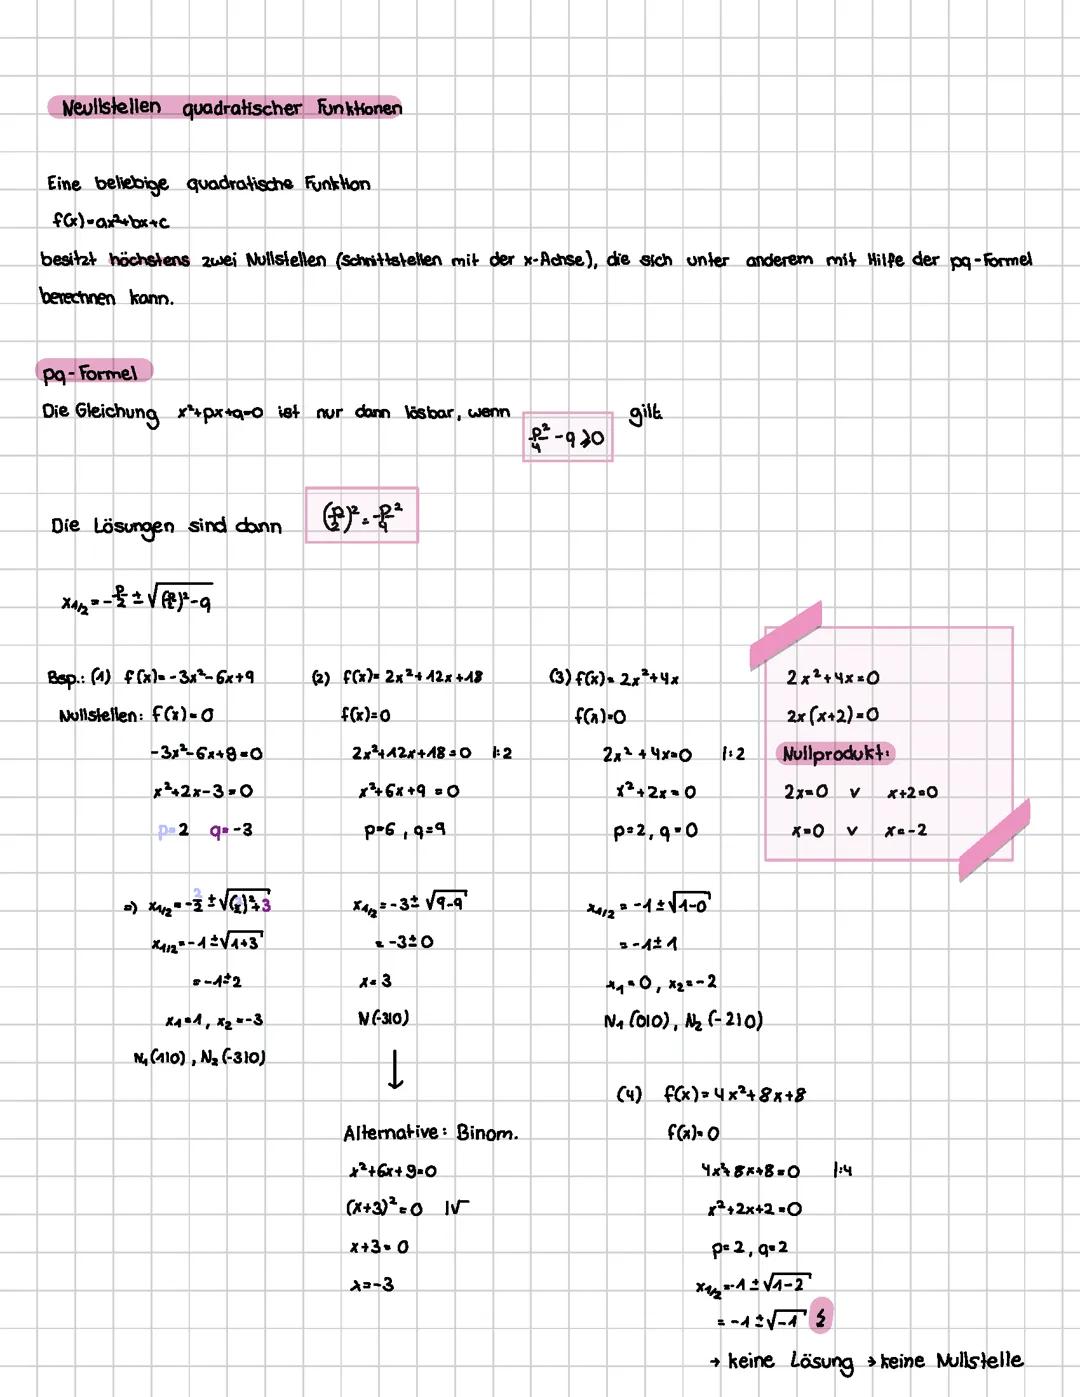 Neullstellen quadratischer Funktionen
Eine beliebige quadratische Funktion
f(x)=ax²+bx+c
besitzt höchstens zwei Nullstellen (Schnittstellen mit der x-Achse), die sich unter anderem mit Hilfe der pq-Formel
berechnen kann.
pq-Formel
Die Gleichung x²+px+q=0 ist nur dann lösbar, wenn p²/4 -q ≥0 gilt
Die Lösungen sind dann (p/2)² = p²/4
x1/2 = -p/2 ± √((p/2)²-q)
Bsp.: (1) f(x)= -3x²-6x+9
Nullstellen: f(x)=0
-3x²-6x+9=0
x²+2x-3=0
p=2 q=-3
=) x1/2=-2/2±√((2/2)²+3)
x1/2=-1±√(1+3)
=-1±2
x1=1, x2=-3
N1(1|0), N2(-3|0)
(2) f(x)= 2x²+12x+18
f(x)=0
2x²+12x+18=0 |:2
x²+6x+9 =0
p=6, q=9
x1/2=-3±√(9-9)
=-3±0
x=3
N(-3|0)
↓
Alternative: Binom.
x²+6x+9=0
(x+3)²=0 |√
x+3=0
x=-3
(3) f(x)= 2x²+4x
f(x)=0
2x²+4x=0 |:2
x²+2x=0
p=2, q=0
x1/2 = -1±√(1-0)
=-1±1
x1=0, x2=-2
N1(0|0), N2(-2|0)
2x²+4x=0
2x(x+2)=0
Nullprodukt:
2x=0 v x+2=0
x=0 v x=-2
(4) f(x)=4x²+8x+8
f(x)=0
4x²+8x+8=0 |:4
x²+2x+2=0
p=2, q=2
x1/2=-1±√(1-2)
=-1±√-1 ↯
→ keine Lösung → keine Nullstelle